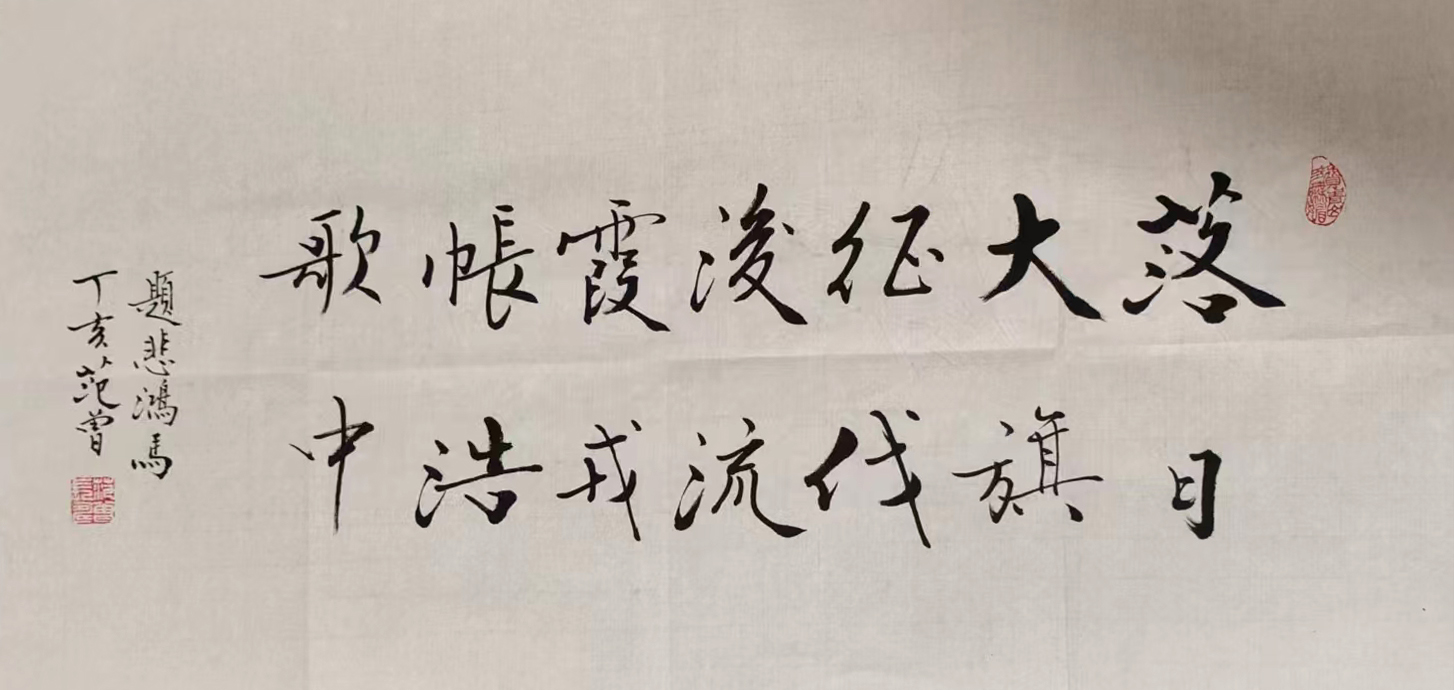 落日
大旗
征伐
後流
霞戎
帳浩
歌中
題悲鴻馬
丁亥范曾